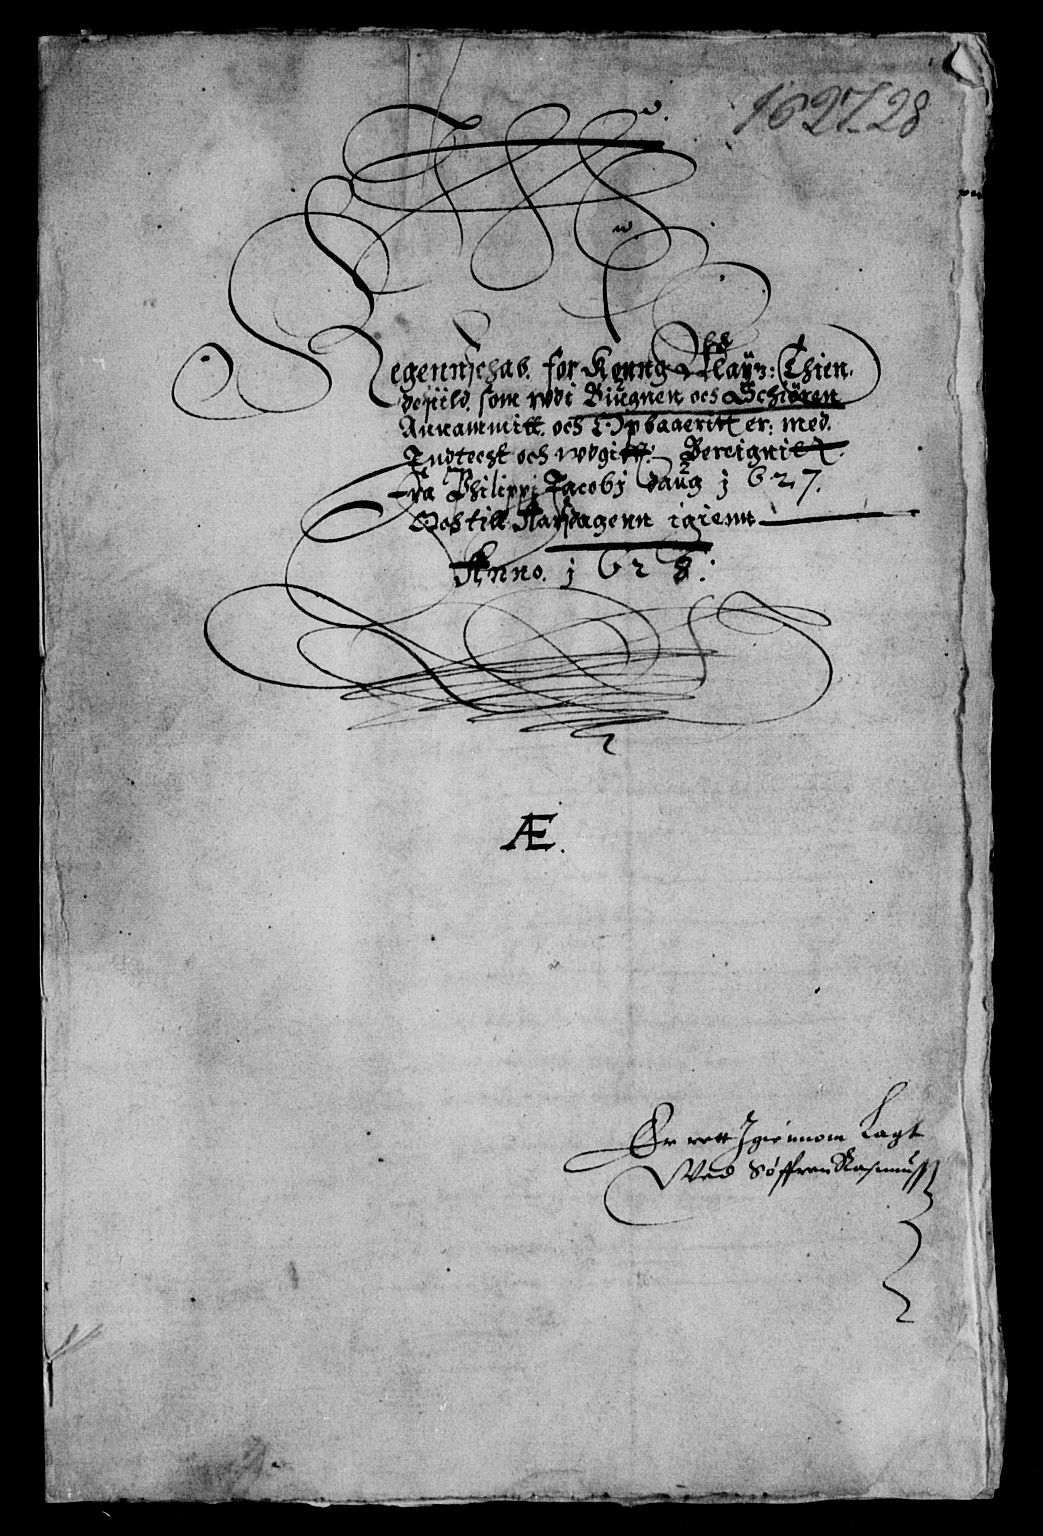 1627-28
Regennschab. for Konng May: Thien.
desiild. som wdi Biugnen och Schiøren
Annammitt. och Opbaaeritt er: med.
Indtecht och wdgifft: Bereignitt.
Fra Philippj Jacobj daug j 627.
Och till Aarsdagenn igienn
Anno. j 628.
Æ.
Er rett Igiennom Lagt
Wed Søffren Rasmuss